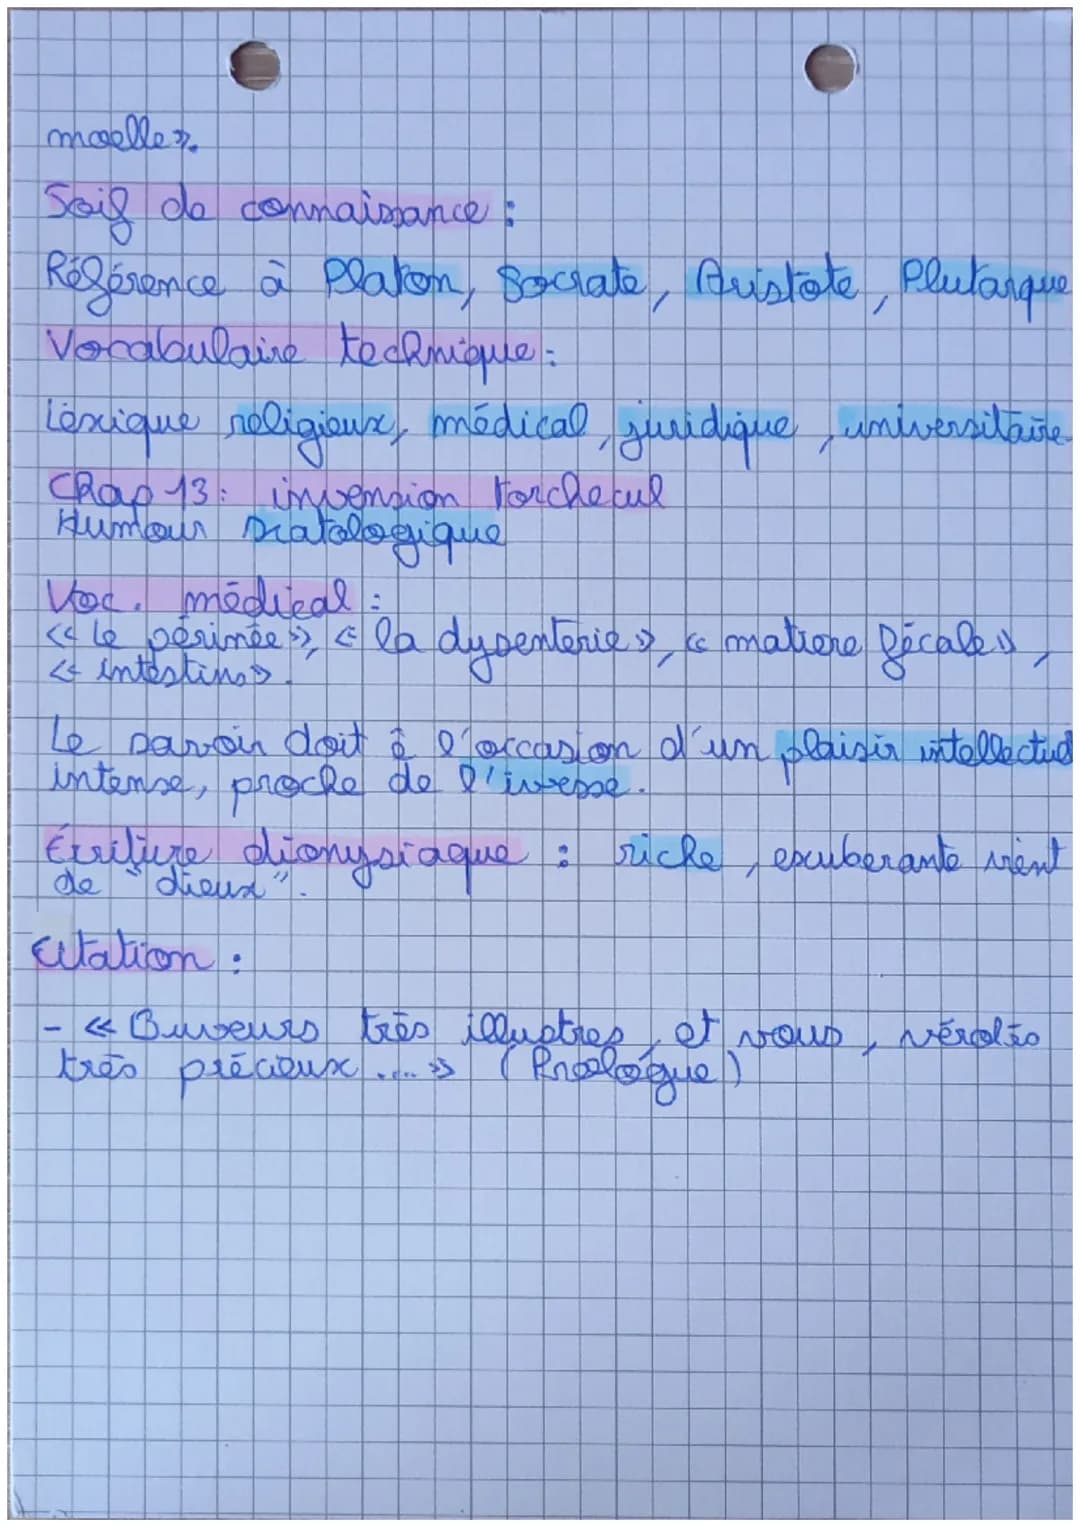 moelle».
Soif de connaissance :
Référence à Platon, Socrate, Aristote, Plutarque
Vocabulaire technique :
Lexique religieux, médical, juridique, universitaire
Chap 13 : invension torchecul
Humour scatologique
Voc. médical :
« Le périnée », « la dysenterie », « matiere fécale »,
« intestins ».
Le savoir doit ê l'occasion d'un plaisir intellectuel
intense, proche de l'ivresse.
Écriture dionysiaque : riche, exuberante vient
de "dieux".
Citation :
- « Buveurs très illustres, et vous, vérolés
très précieux .... » (Prologue)